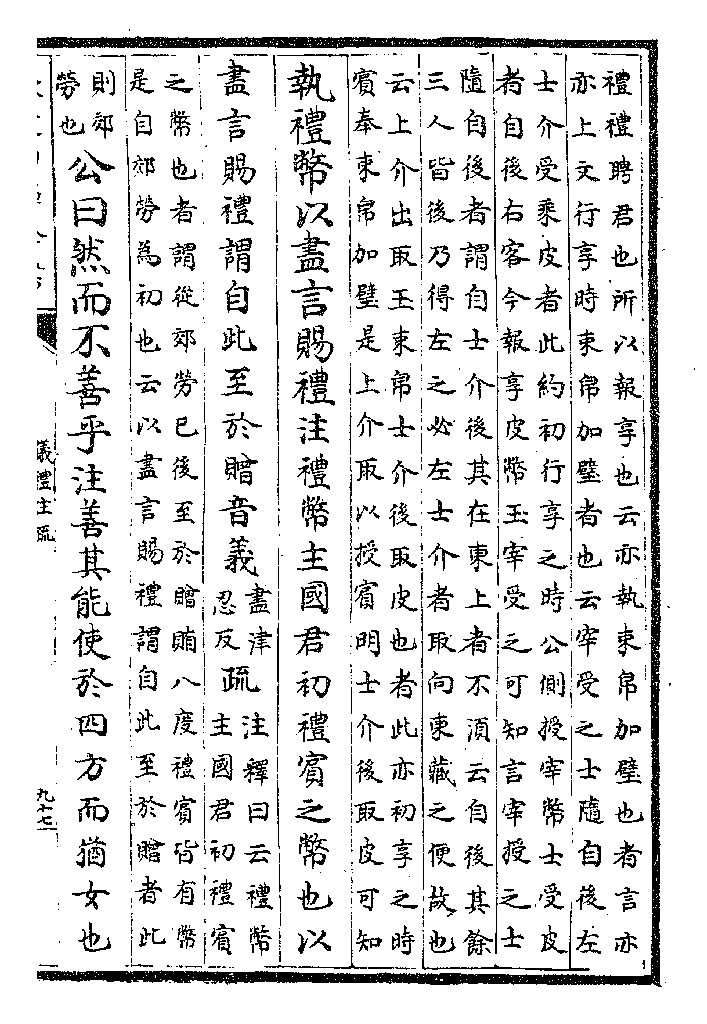 禮禮聘君也所以報享也云亦執束帛加璧也者言亦
亦上文行享時束帛加璧者也云宰受之士隨自後左
士介受乘皮者此約初行享之時公側授宰幣士受皮
者自後右客今報享皮幣玉宰受之可知言宰授之士
隨自後者謂自士介後其在東上者不須云自後其餘
三人皆後乃得左之必左士介者取向東藏之便故也
云上介出取玉束帛士介後取皮也者此亦初享之時
賓奉束帛加璧是上介取以授賓明士介後取皮可知
執禮幣以盡言賜禮注禮幣主國君初禮賓之幣也以
盡言賜禮謂自此至於贈音義盡津忍反疏注釋曰云禮幣主國君初禮賓
之幣也者謂從郊勞已後至於贈賄八度禮賓皆有幣
是自郊勞為初也云以盡言賜禮謂自此至於贈者此
則郊勞也公曰然而不善乎注善其能使於四方而猶女也
儀禮注疏
九十七